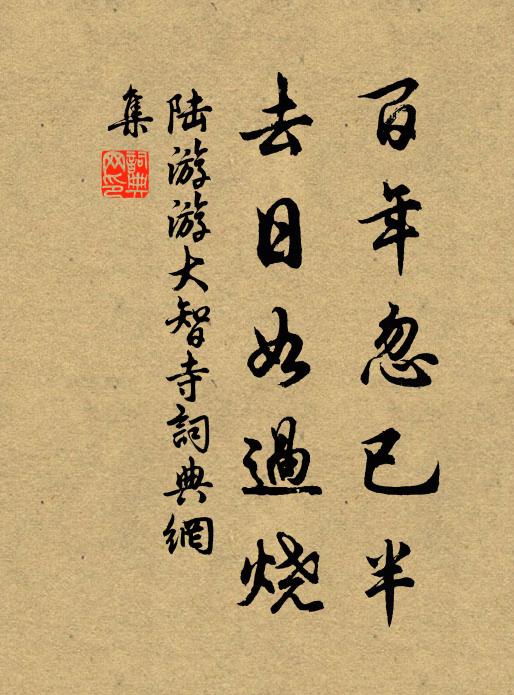 百年忽已半
去日如過烧
陆游游大智寺詞典網
集
詞典
网印